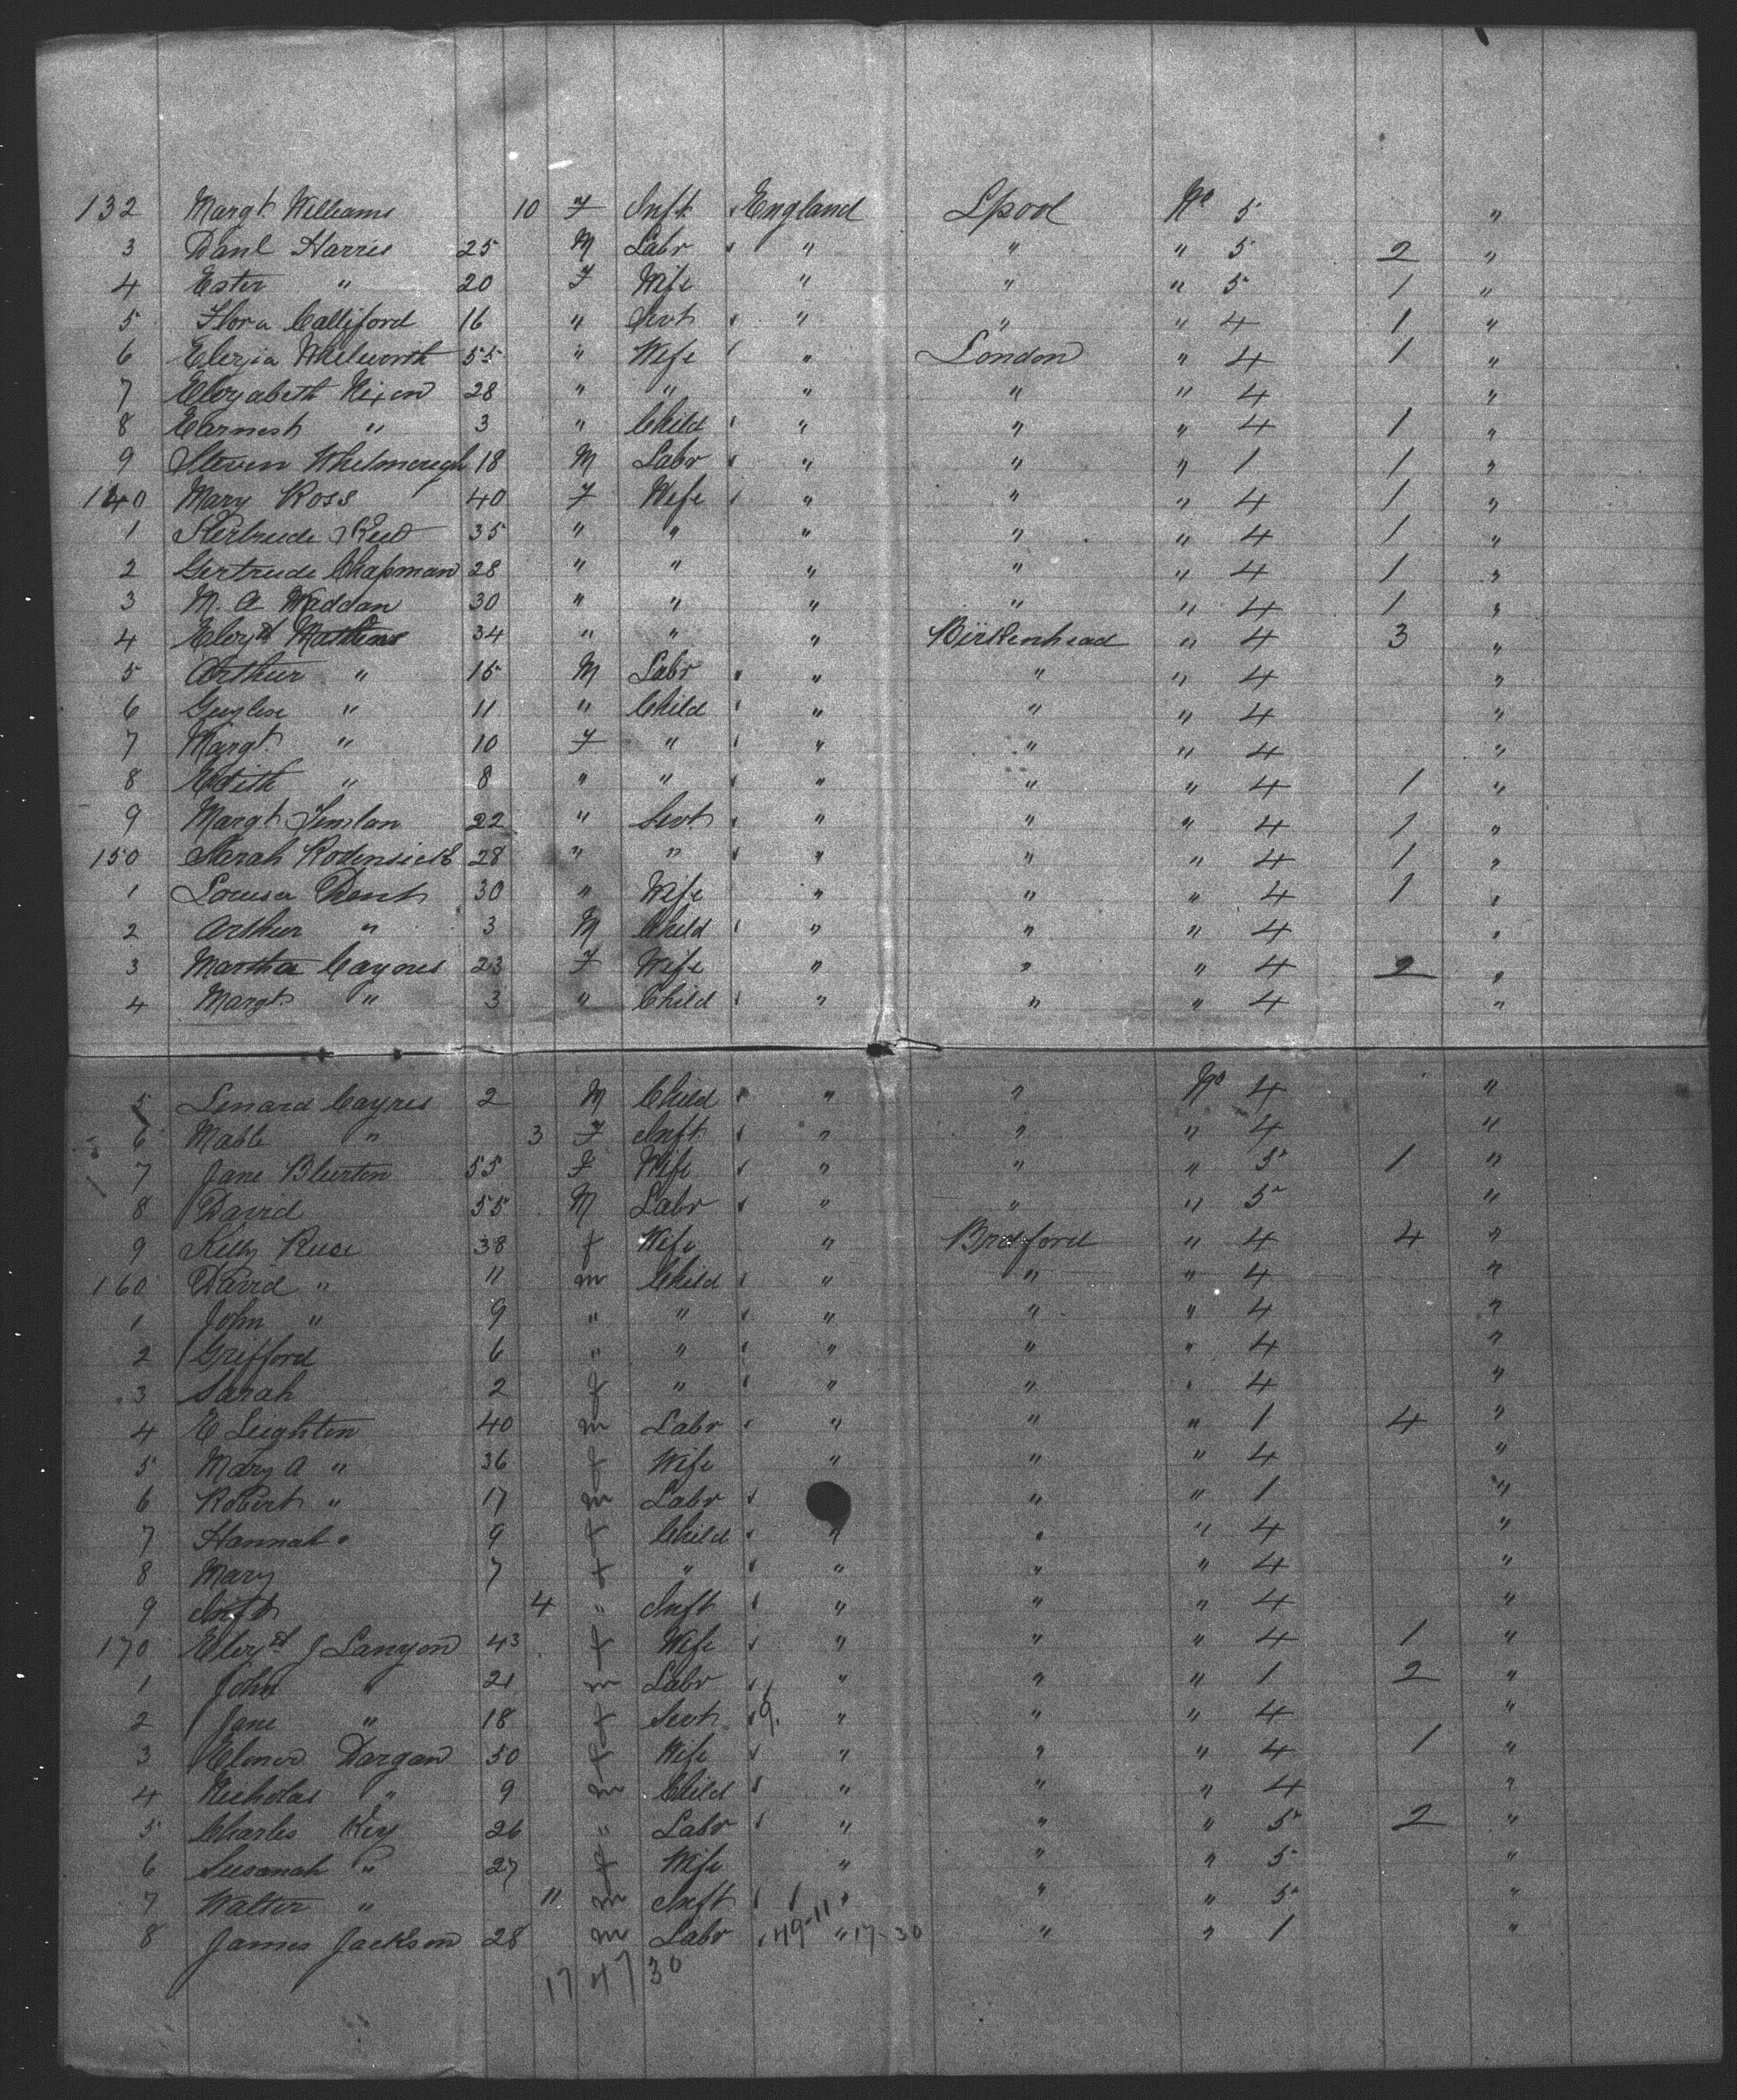 132 Margt Williams 10 F Inft England Lpool No 5 "
3 Danl Harris 25 M Labr " " " 5 2 "
4 Ester " 20 F Wife " " " 5 1 "
5 Flora Calliford 16 " Servt " " " 4 1 "
6 Whitworth 55 " Wife " London " 4 1 "
7 Nixon 28 " " " " " 4 "
8 Earnest " 3 " Child " " " 4 1 "
9 Steven 18 M Labr " " " 1 1 "
140 Mary Ross 40 F Wife " " " 4 1 "
1 35 " " " " " 4 1 "
2 Gertrude Chapman 28 " " " " " 4 1 "
3 M. A Waddan 30 " " " " " 4 1 "
4 34 " " " Birkenhead " 4 3 "
5 Arthur " 15 M Labr " " " 4 "
6 " 11 " Child " " " 4 "
7 Margt " 10 F " " " " 4 "
8 Edith " 8 " " " " " 4 1 "
9 Margt 22 " Servt " " " 4 1 "
150 Sarah 28 " " " " " 4 1 "
1 Louisa Dent 30 " Wife " " " 4 1 "
2 Arthur " 3 M Child " " " 4 "
3 Martha Caynes 23 F Wife " " " 4 2 "
4 Margt " 3 " Child " " " 4 "
5 Lenard Caynes 2 M Child " " No 4 "
6 Mabl " 3 F Inft " " " 4 "
7 Jane Blurton 55 F Wife " " " 5 1 "
8 David 55 M Labr " " " 5 "
9 38 f Wife " Bradford " 4 4 "
160 David " 11 m Child " " " 4 "
1 John " 9 " " " " " 4 "
2 Grifford 6 " " " " " 4 "
3 Sarah 2 f " " " " 4 "
4 E Leighton 40 m Labr " " " 1 4 "
5 Mary A " 36 f Wife " " " 4 "
6 Robert " 17 m Labr " " 1 "
7 Hannah " 9 f Child " " " 4 "
8 Mary 7 f " " " " 4 "
9 Inft 4 " Inft " " " 4 "
170 J Lanyon 43 f Wife " " " 4 1 "
1 John " 21 m Labr " " " 1 2 "
2 Jane " 18 f Servt 9. " " " 4 "
3 Dargan 50 f Wife " " " 4 1 "
4 Nicholas " 9 m Child " " " 4 "
5 Charles Key 26 " Labr " " " 5 2 "
6 Susanah " 27 f Wife " " " 5 "
7 Walter " 11 m Inft " " " 5 "
8 James Jackson 28 m Labr 49-11 " 17-30 " " 1 "
17 47 30